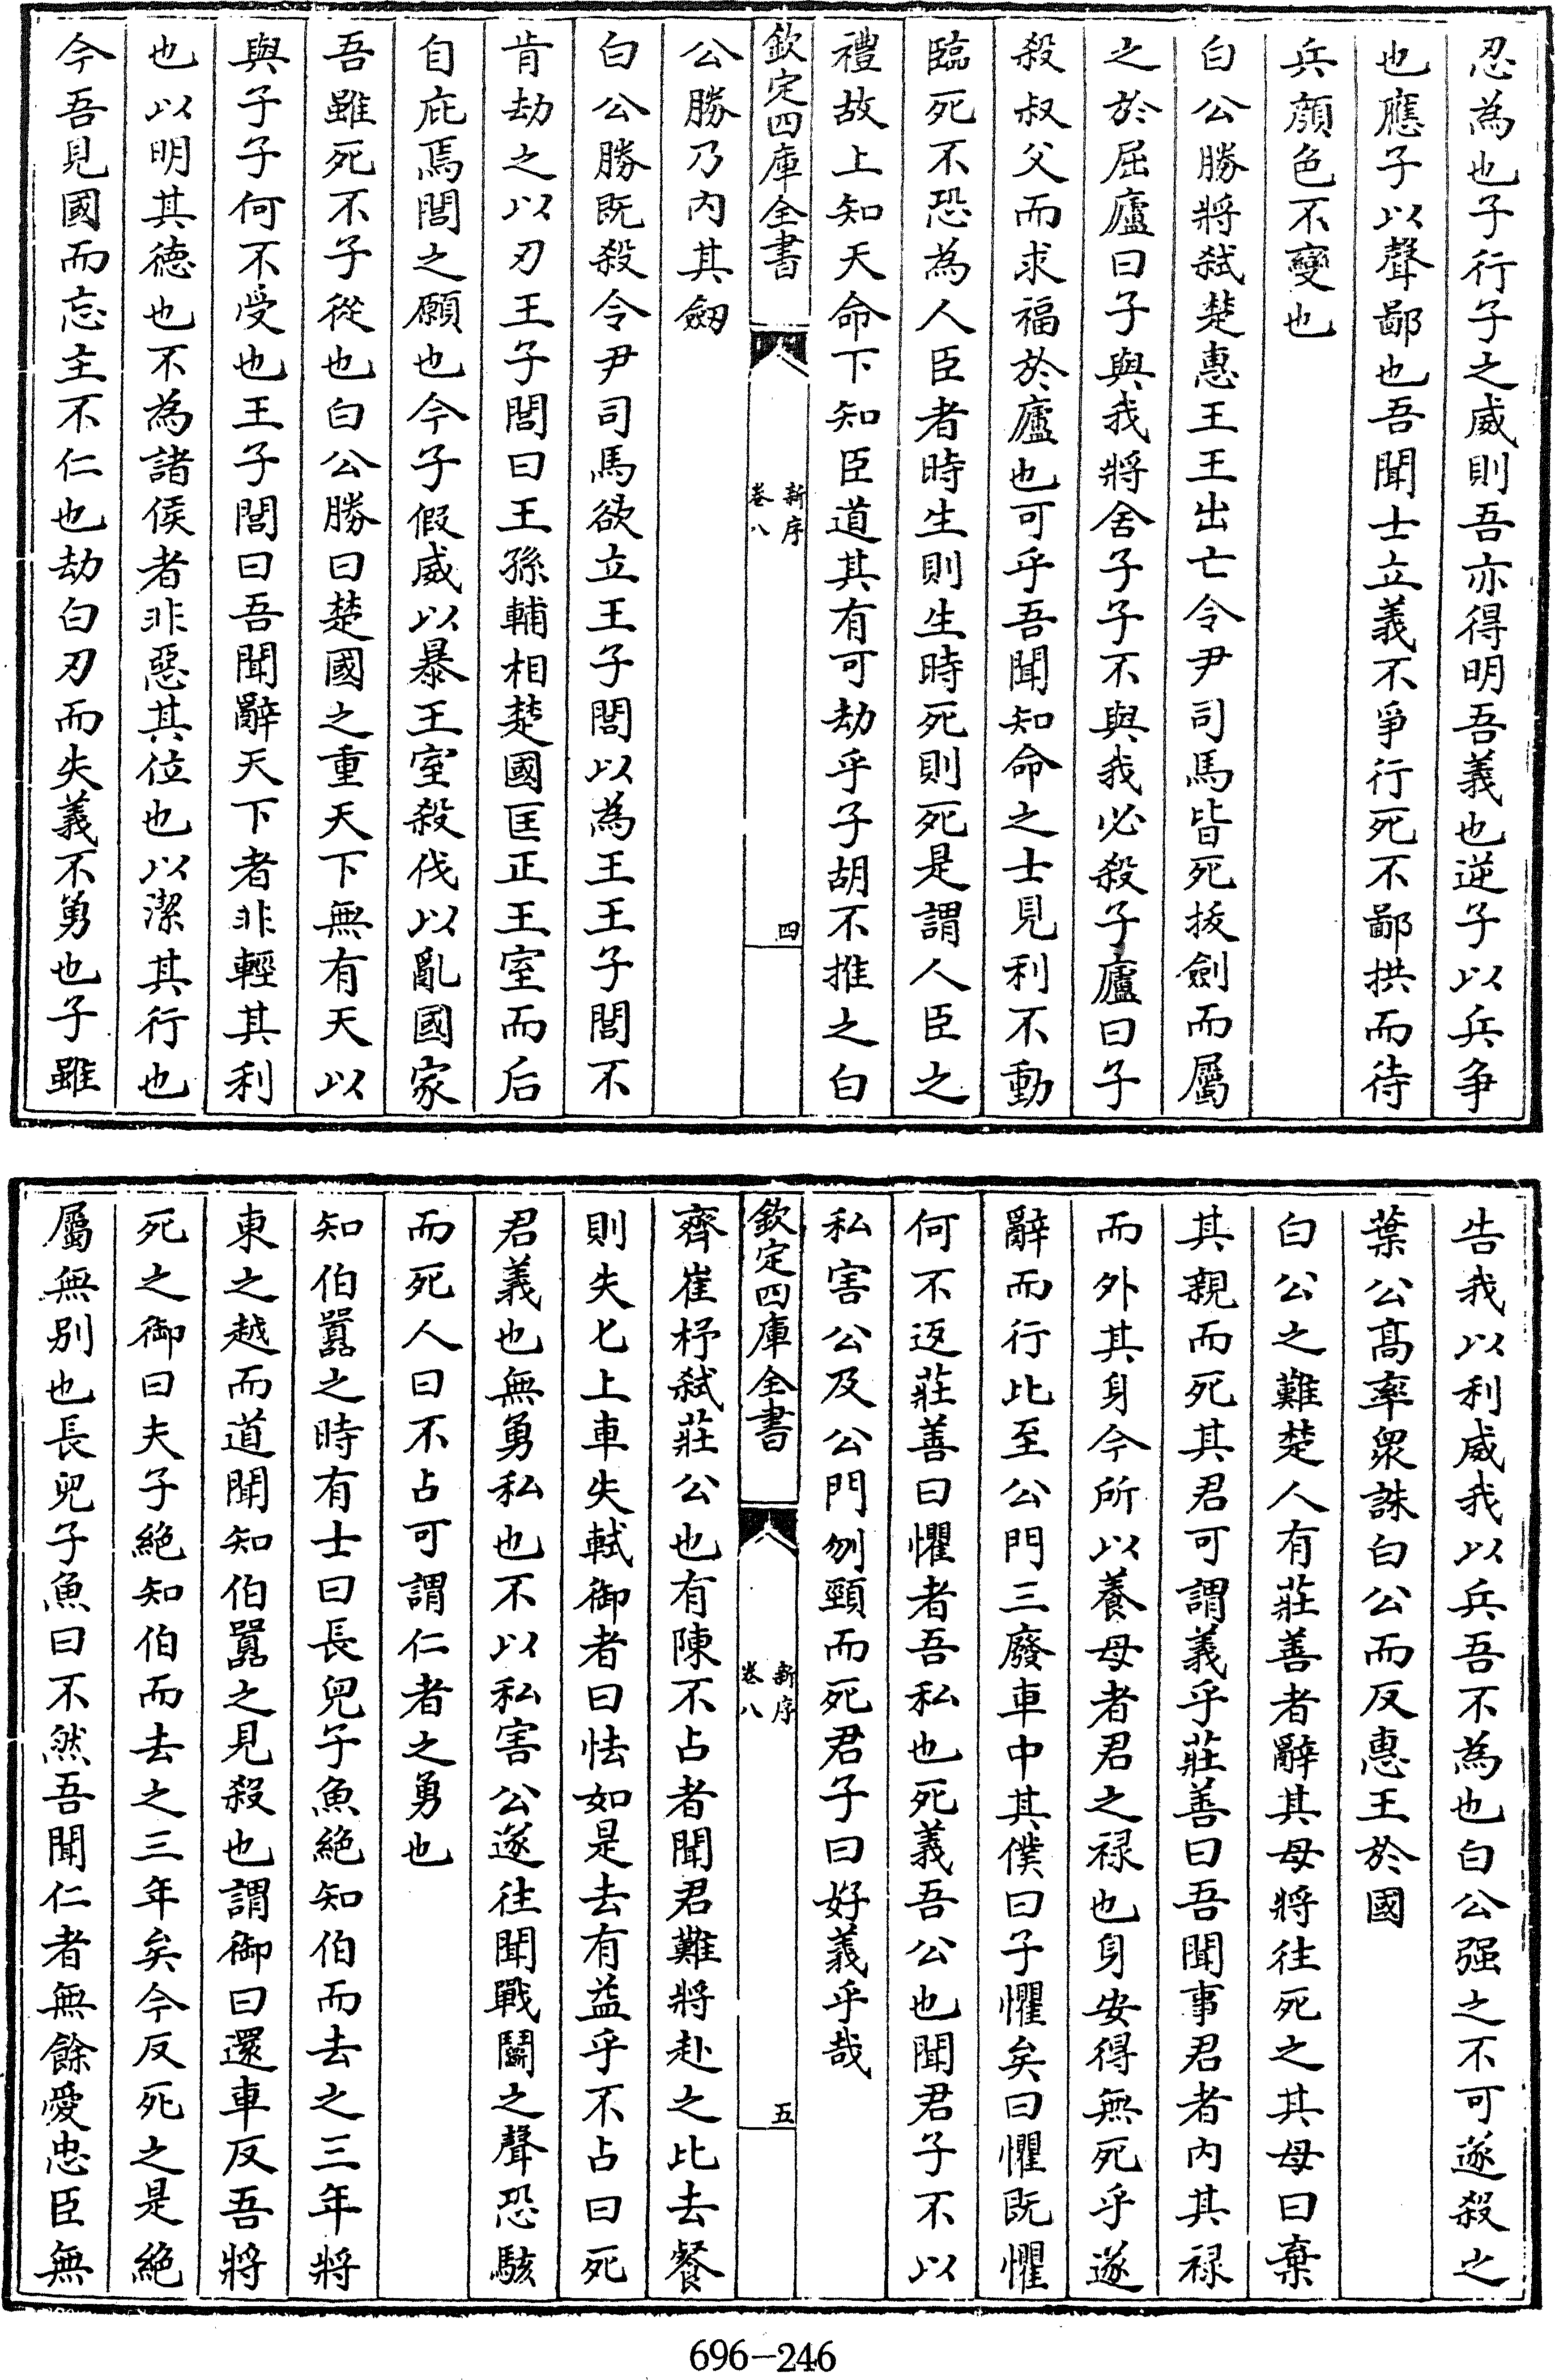 忍為也子行子之威則吾亦得明吾義也逆子以兵争
也應子以聲鄙也吾聞士立義不爭行死不鄙拱而待
兵顔色不變也
白公勝將弑楚惠王王出亡令尹司馬皆死抜劍而屬
之於屈廬曰子與我將舍子子不與我必殺子廬曰子
殺叔父而求福於廬也可乎吾聞知命之士見利不動
臨死不恐為人臣者時生則生時死則死是謂人臣之
禮故上知天命下知臣道其有可劫乎子胡不推之白
欽定四庫全書
新序
卷八
四
公勝乃内其劒
白公勝既殺令尹司馬欲立王子閭以為王王子閭不
肯劫之以刃王子閭曰王孫輔相楚國匡正王室而后
自庇焉閭之願也今子假威以暴王室殺伐以亂國家
吾雖死不子從也白公勝曰楚國之重天下無有天以
與子子何不受也王子閭曰吾聞辭天下者非輕其利
也以明其徳也不為諸侯者非惡其位也以潔其行也
今吾見國而忘主不仁也劫白刃而失義不勇也子雖
告我以利威我以兵吾不為也白公强之不可遂殺之
葉公髙率衆誅白公而反惠王於國
白公之難楚人有莊善者辭其母將往死之其母曰棄
其親而死其君可謂義乎莊善曰吾聞事君者内其禄
而外其身今所以養母者君之禄也身安得無死乎遂
辭而行比至公門三廢車中其僕曰子懼矣曰懼既懼
何不返莊善曰懼者吾私也死義吾公也聞君子不以
私害公及公門刎頸而死君子曰好義乎哉
欽定四庫全書
新序
卷八
五
齊崔杼弑莊公也有陳不占者聞君難將赴之比去餐
則失匕上車失軾御者曰怯如是去有益乎不占曰死
君義也無勇私也不以私害公遂往聞戰鬭之聲恐駭
而死人曰不占可謂仁者之勇也
知伯嚚之時有士曰長兒子魚絶知伯而去之三年將
東之越而道聞知伯嚚之見殺也謂御曰還車反吾將
死之御曰夫子絶知伯而去之三年矣今反死之是絶
屬無别也長兒子魚曰不然吾聞仁者無餘愛忠臣無
696-246